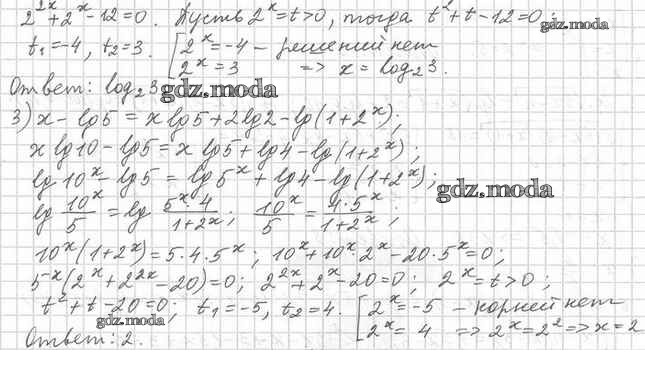 2^{2x} + 2^x - 12 = 0. Пусть 2^x = t > 0, тогда t^2 + t - 12 = 0;
gdz.moda
t_1 = -4, t_2 = 3. [2^x = -4 - решений нет
2^x = 3 => x = log_2 3.
Ответ: log_2 3
gdz.moda
3) x - lg5 = x lg5 + 2lg2 - lg(1+2^x);
x lg10 - lg5 = x lg5 + lg4 - lg(1+2^x);
lg 10^x - lg5 = lg 5^x + lg4 - lg(1+2^x);
gdz.moda
lg 10^x/5 = lg 5^x·4/1+2^x; 10^x/5 = 4·5^x/1+2^x;
10^x(1+2^x) = 5·4·5^x; 10^x + 10^x·2^x - 20·5^x = 0;
5^{-x}(2^x + 2^{2x} - 20) = 0; 2^{2x} + 2^x - 20 = 0; 2^x = t > 0;
t^2 + t - 20 = 0; t_1 = -5, t_2 = 4. [2^x = -5 - корней нет
gdz.moda
2^x = 4 => 2^x = 2^2 => x = 2
Ответ: 2.